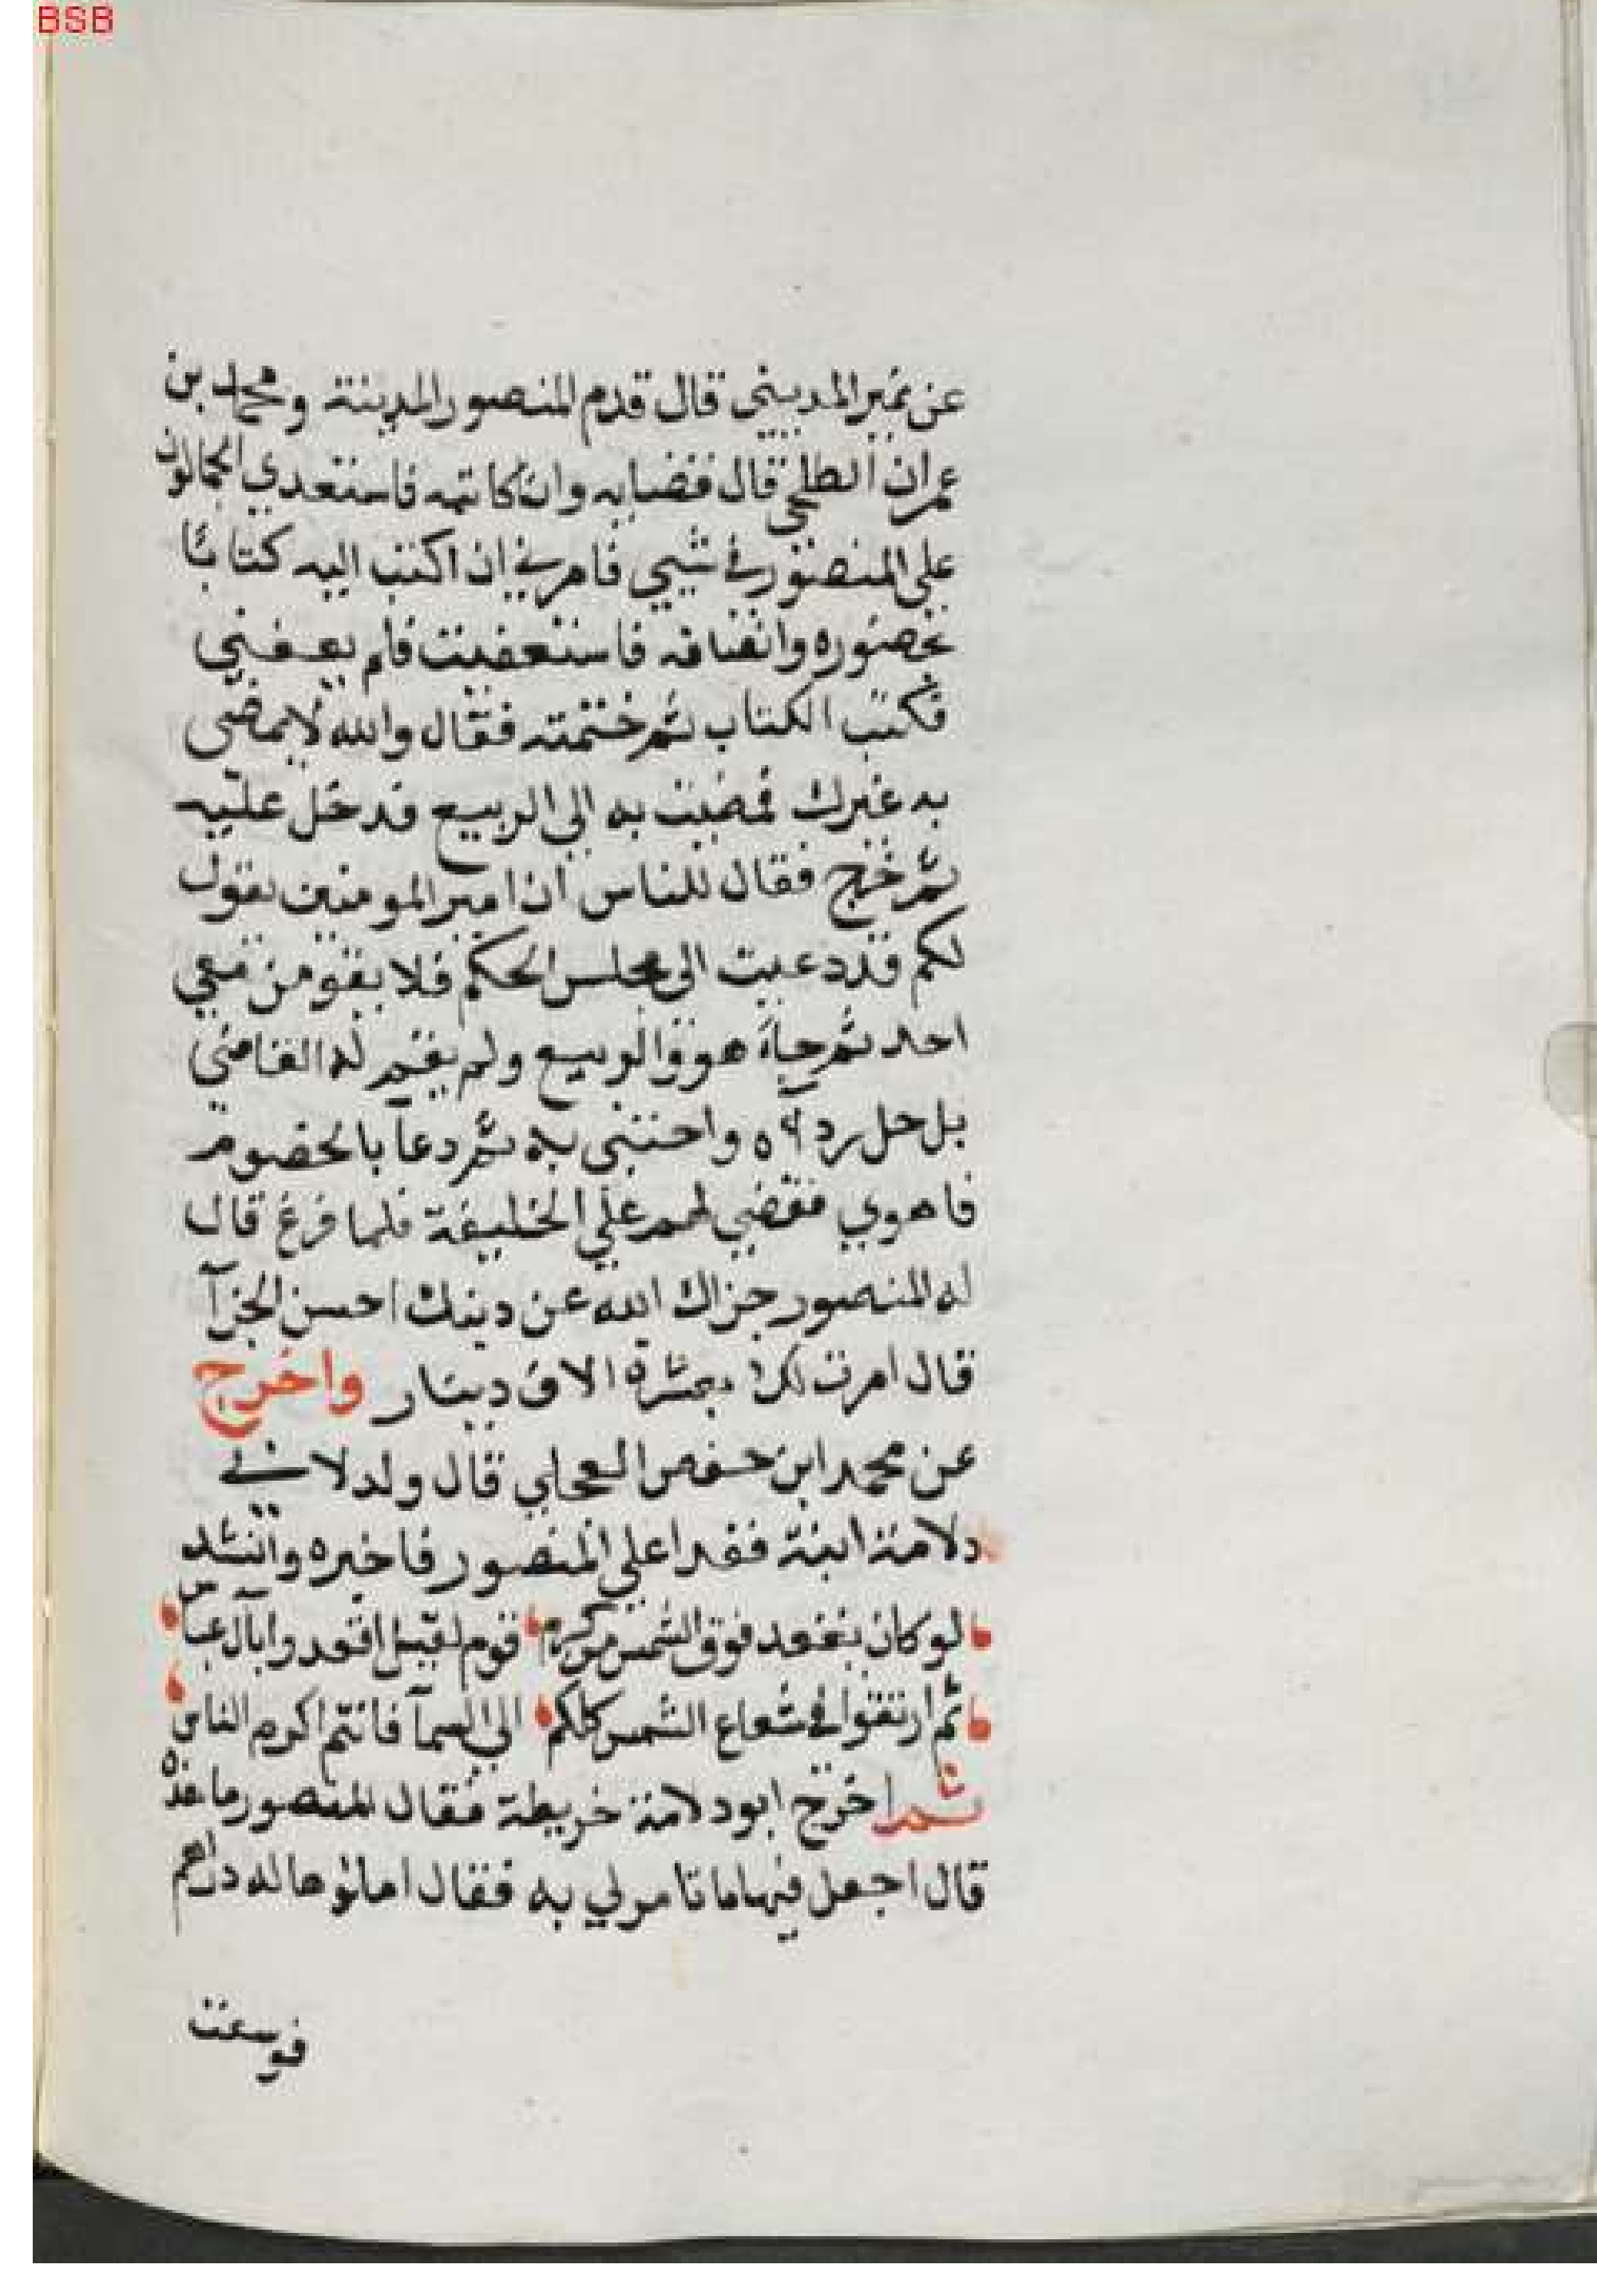 BSB
عن نمير المديني قال قدم المنصور المدينة ومحمد بن
عمران الطلحي قال فضابه وان كاتبه فاستعدي الجمالون
علي المنصور في شيي فامرني ان اكتب اليه كتابا
بحضوره وانضافه فاستعفيت فلم يعفني
فكتب الكتاب ثم ختمته فقال والله لا يمضى
به غيرك فمضيت به الى الربيع فدخل عليه
ثم خرج فقال للناس ان امير المومنين يقول
لكم قد دعيت الى مجلس الحكم فلا يقومن معي
احد ثم جاء هو والربيع ولم يقم له القاضي
بل حل رداءه واحتبى به ثم دعا بالخصوم
فاهوي فقضي لهم علي الخليفة فلما فرغ قال
له المنصور جزاك الله عن دينك احسن الجزآ
قال امرت لك بعشرة الاف دينار واخرج
عن محمد ابن حفص العجلي قال ولد لابي
دلامة ابنة فغدا علي المنصور فاخبره وانشد
لو كان يقعد فوق الشمس من كرم قوم لقيل اقعدوا يآل عباس
ثم ارتقوا في شعاع الشمس كلكم الي السمآ فانتم اكرم الناس
ثم اخرج ابو دلامة خريطة فقال المنصور ما هذه
قال اجعل فيها ما تامر لي به فقال املؤها له دراهم
فوسعت